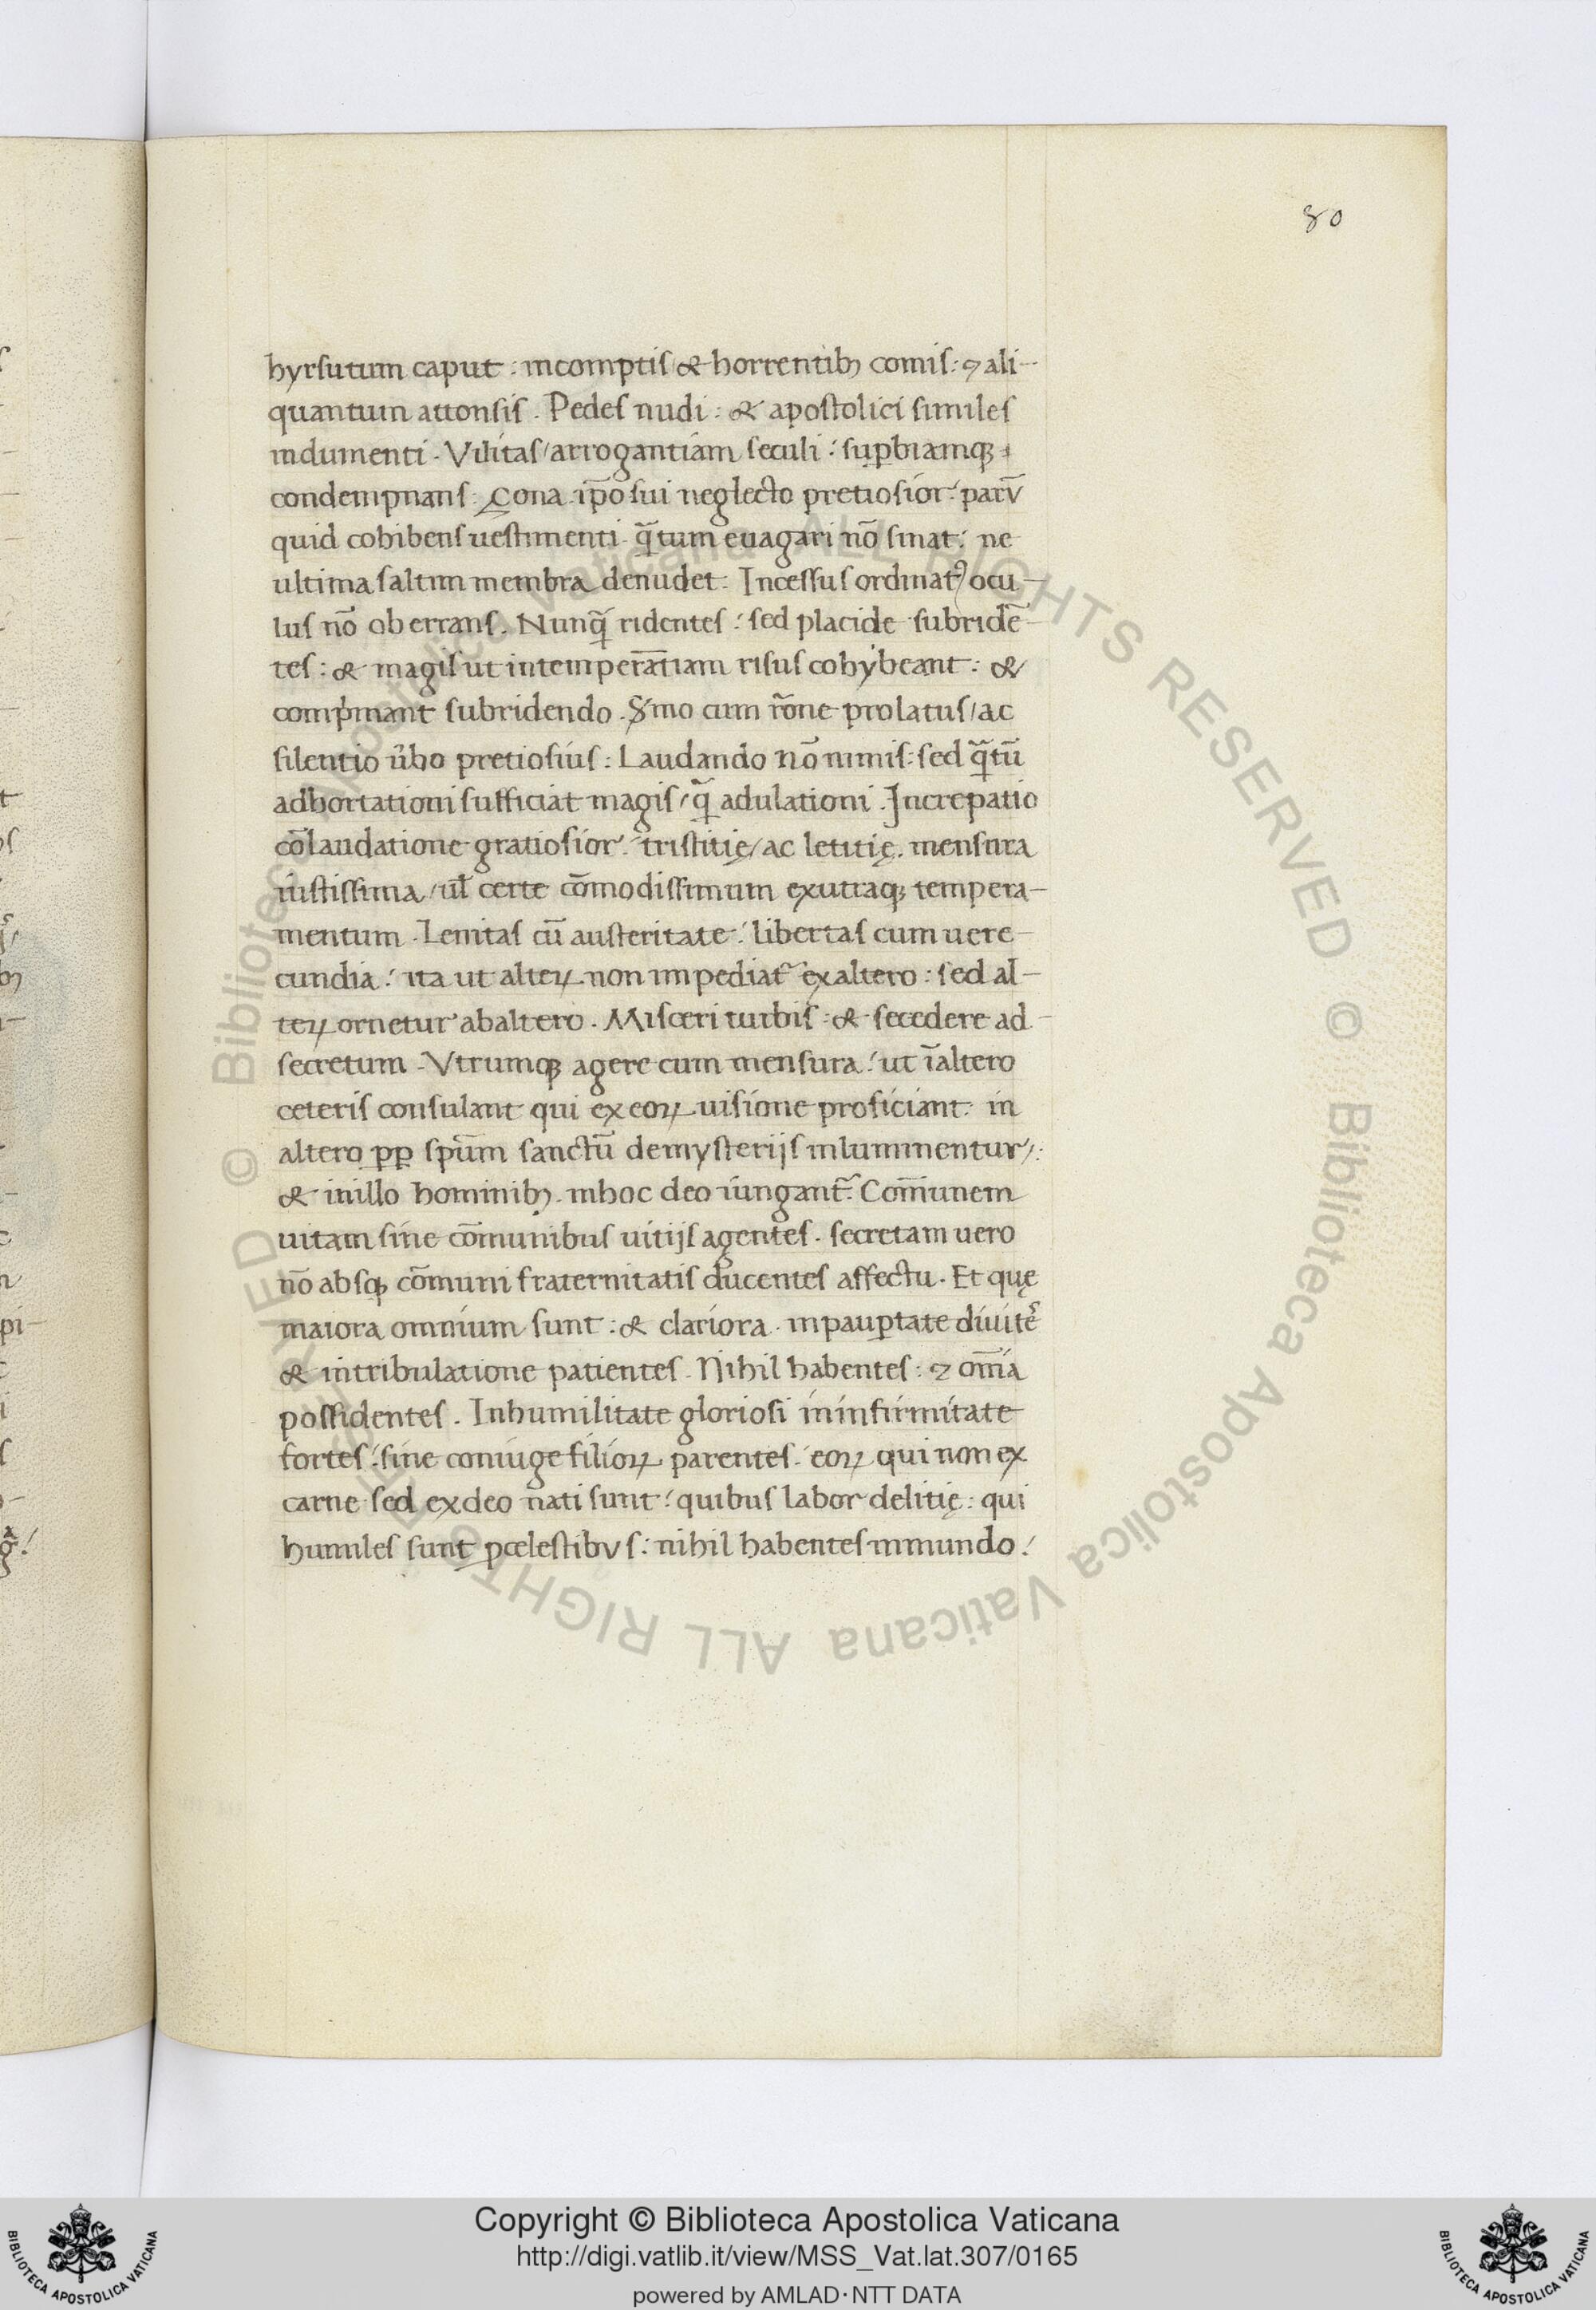 80
hyrsutum caput : incomptis / & horrentibꝫ comis : ⁊ ali-
quantum attonsis . Pedes nudi : & apostolici similes
indumenti . Vilitas / arrogantiam seculi : suꝑbiamqꝫ
condempnans . Çona ip̄o sui neglecto pretiosior : parū
quid cohibens uestimenti . q̄tum euagari nō sinat : ne
ultima saltim membra denudet . Incessus ordinatꝰ ocu-
lus nō ob errans . Nunq̄ ridentes : sed placide subridē-
tes : & magis ut intemperātiam risus cohybeant : &
comp̍mant subridendo . S̵mo cum rōne prolatus / ac
silentio u̍bo pretiosius : Laudando nō nimis : sed q̄tū
adhortationi sufficiat magis / q̄ adulationi . Increpatio
cōlaudatione gratiosior : tristitię / ac letitię . mensura
iustissima / ul̄ certe cōmodissimum exutraqꝫ tempera-
mentum . Lenitas cū austeritate : libertas cum uere-
cundia : ita ut alteꝝ non impediat᷑ exaltero : sed al-
teꝝ ornetur abaltero . Misceri turbis : & secedere ad
secretum . Vtrumqꝫ agere cum mensura : ut īaltero
ceteris consulant qui ex eoꝝ uisione proficiant : in
altero ꝑꝑ sp̄um sanctū demysterijs inluminentur :
& inillo hominibꝫ . inhoc deo iungant᷑ . Com̄unem
uitam sine cōmunibus uitijs agentes . secretam uero
nō absqꝫ cōmuni fraternitatis ducentes affectu . Et quę
maiora omnium sunt : & clariora . inpauꝑtate diuitēs
& intribulatione patientes . Nihil habentes : ⁊ om̄ia
possidentes . Inhumilitate gloriosi ininfirmitate
fortes : sine coniuge filioꝝ parentes : eoꝝ qui non ex
carne sed exdeo nati sunt : quibus labor delitię : qui
humiles sunt ꝓcelestibus : nihil habentes inmundo :
© Biblioteca Apostolica Vaticana ALL RIGHTS RESERVED © Biblioteca Apostolica Vaticana ALL RIGHTS RESERVED
Copyright © Biblioteca Apostolica Vaticana
http://digi.vatlib.it/view/MSS_Vat.lat.307/0165
powered by AMLAD·NTT DATA
BIBLIOTECA APOSTOLICA VATICANA
BIBLIOTECA APOSTOLICA VATICANA